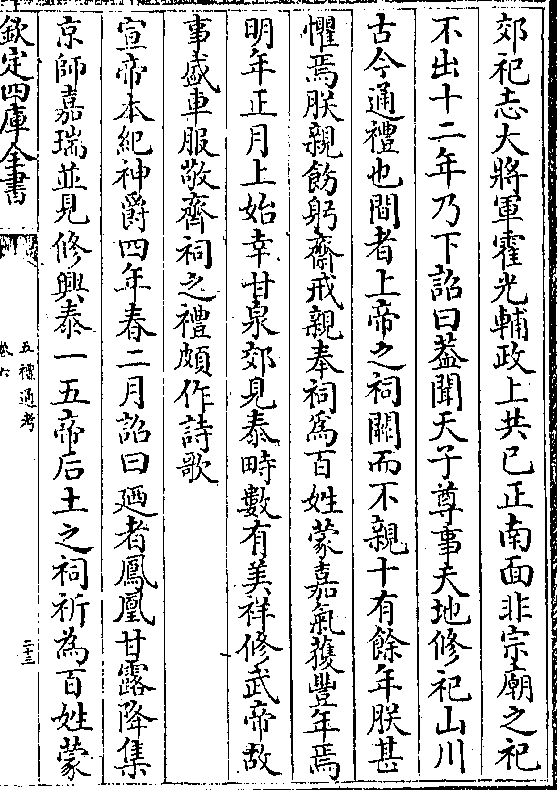 郊祀志大將軍霍光輔政上共已正南面非宗廟之祀
不出十二年乃下詔曰蓋聞天子尊事天地修祀山川
古今通禮也間者上帝之祠闕而不親十有餘年朕甚
懼焉朕親飭躬齋戒親奉祠為百姓蒙嘉氣獲豐年焉
明年正月上始幸甘泉郊見泰畤數有美祥修武帝故
事盛車服敬齊祠之禮頗作詩歌
宣帝本紀神爵四年春二月詔曰廼者鳳凰甘露降集
京師嘉瑞並見修興泰一五帝后土之祠祈為百姓蒙
欽定四庫全書
五禮通考
卷六
二十三